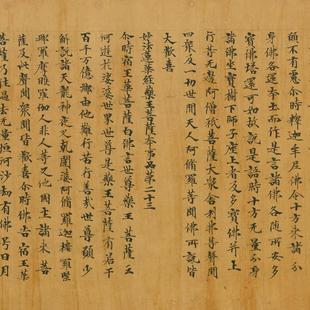 願不有慮尒時釋迦牟尼佛令十方來諸分
身佛各還本土而作是言諸佛各隨所安多
寶佛塔還可如故說是語時十方无量分身
諸佛坐寶樹下師子座上者及多寶佛并上
行等无邊阿僧祇菩薩大衆舍利弗等聲聞
四衆及一切世間天人阿脩羅等聞佛所說皆
大歡喜
妙法蓮華經藥王菩薩本事品第二十三
尒時宿王華菩薩白佛言世尊藥王菩薩云
何遊於娑婆世界世尊是藥王菩薩有若干
百千万億那由他難行苦行善哉世尊願少
解說諸天龍神夜叉乾闥婆阿脩羅迦樓羅緊
那羅摩睺羅伽人非人等又他國土諸來菩
薩及此聲聞衆聞皆歡喜尒時佛告宿王華
菩薩乃往過去无量恒河沙劫有佛号日月